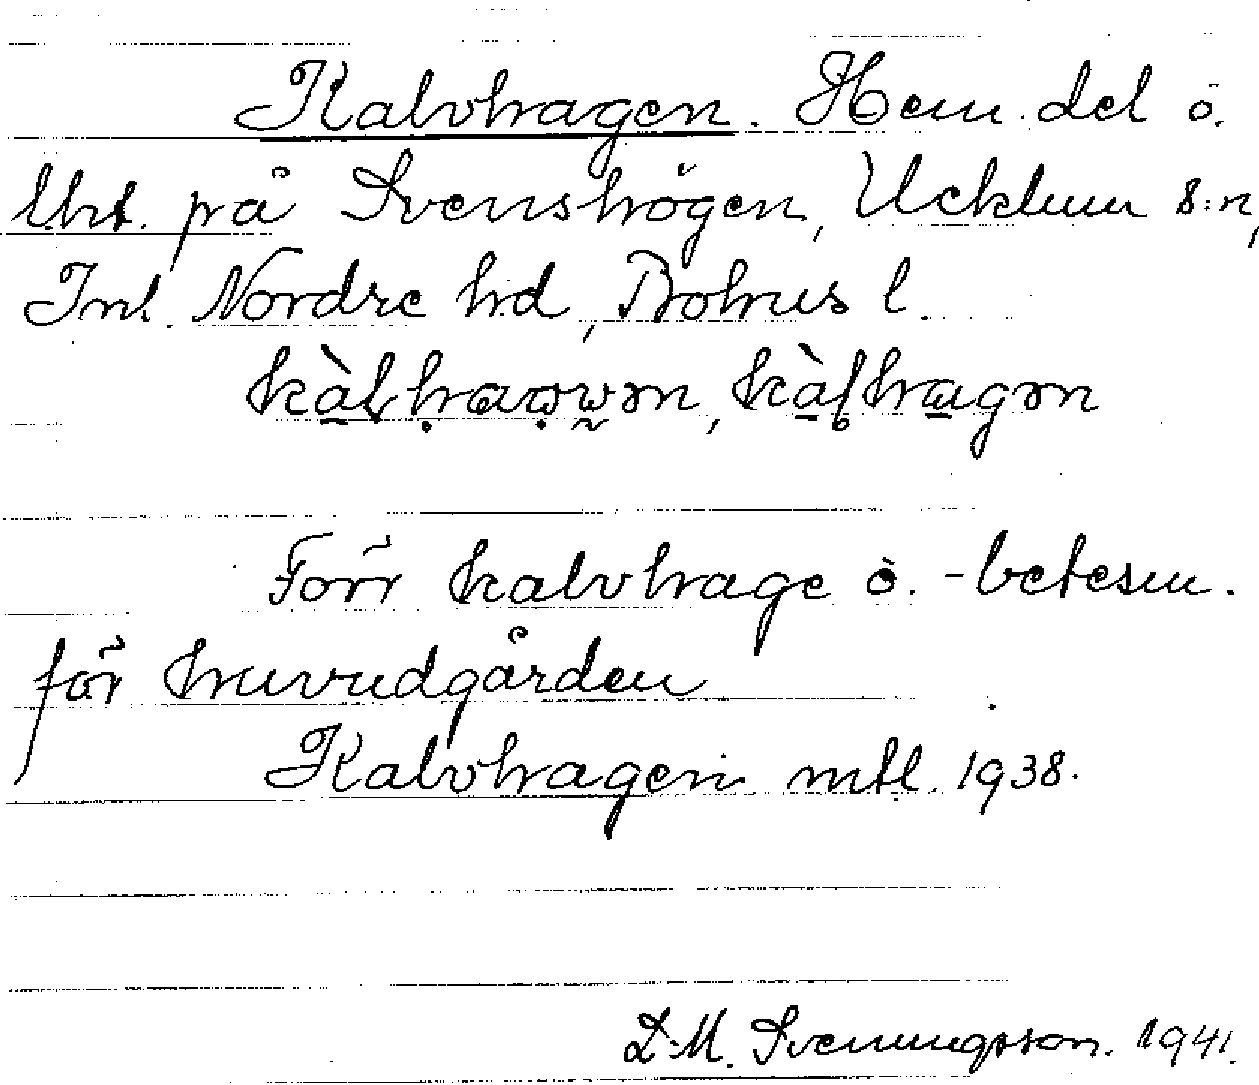 Kalvhagen. Hem.del o.
lht. på Svenshögen, Ucklum s:n,
Inl. Nordre hd, Bohus l.
Förr kalvhage o. -betesm.
för huvudgården
Kalvhagen mtl. 1938.
D.M. Svenungsson. 1941.